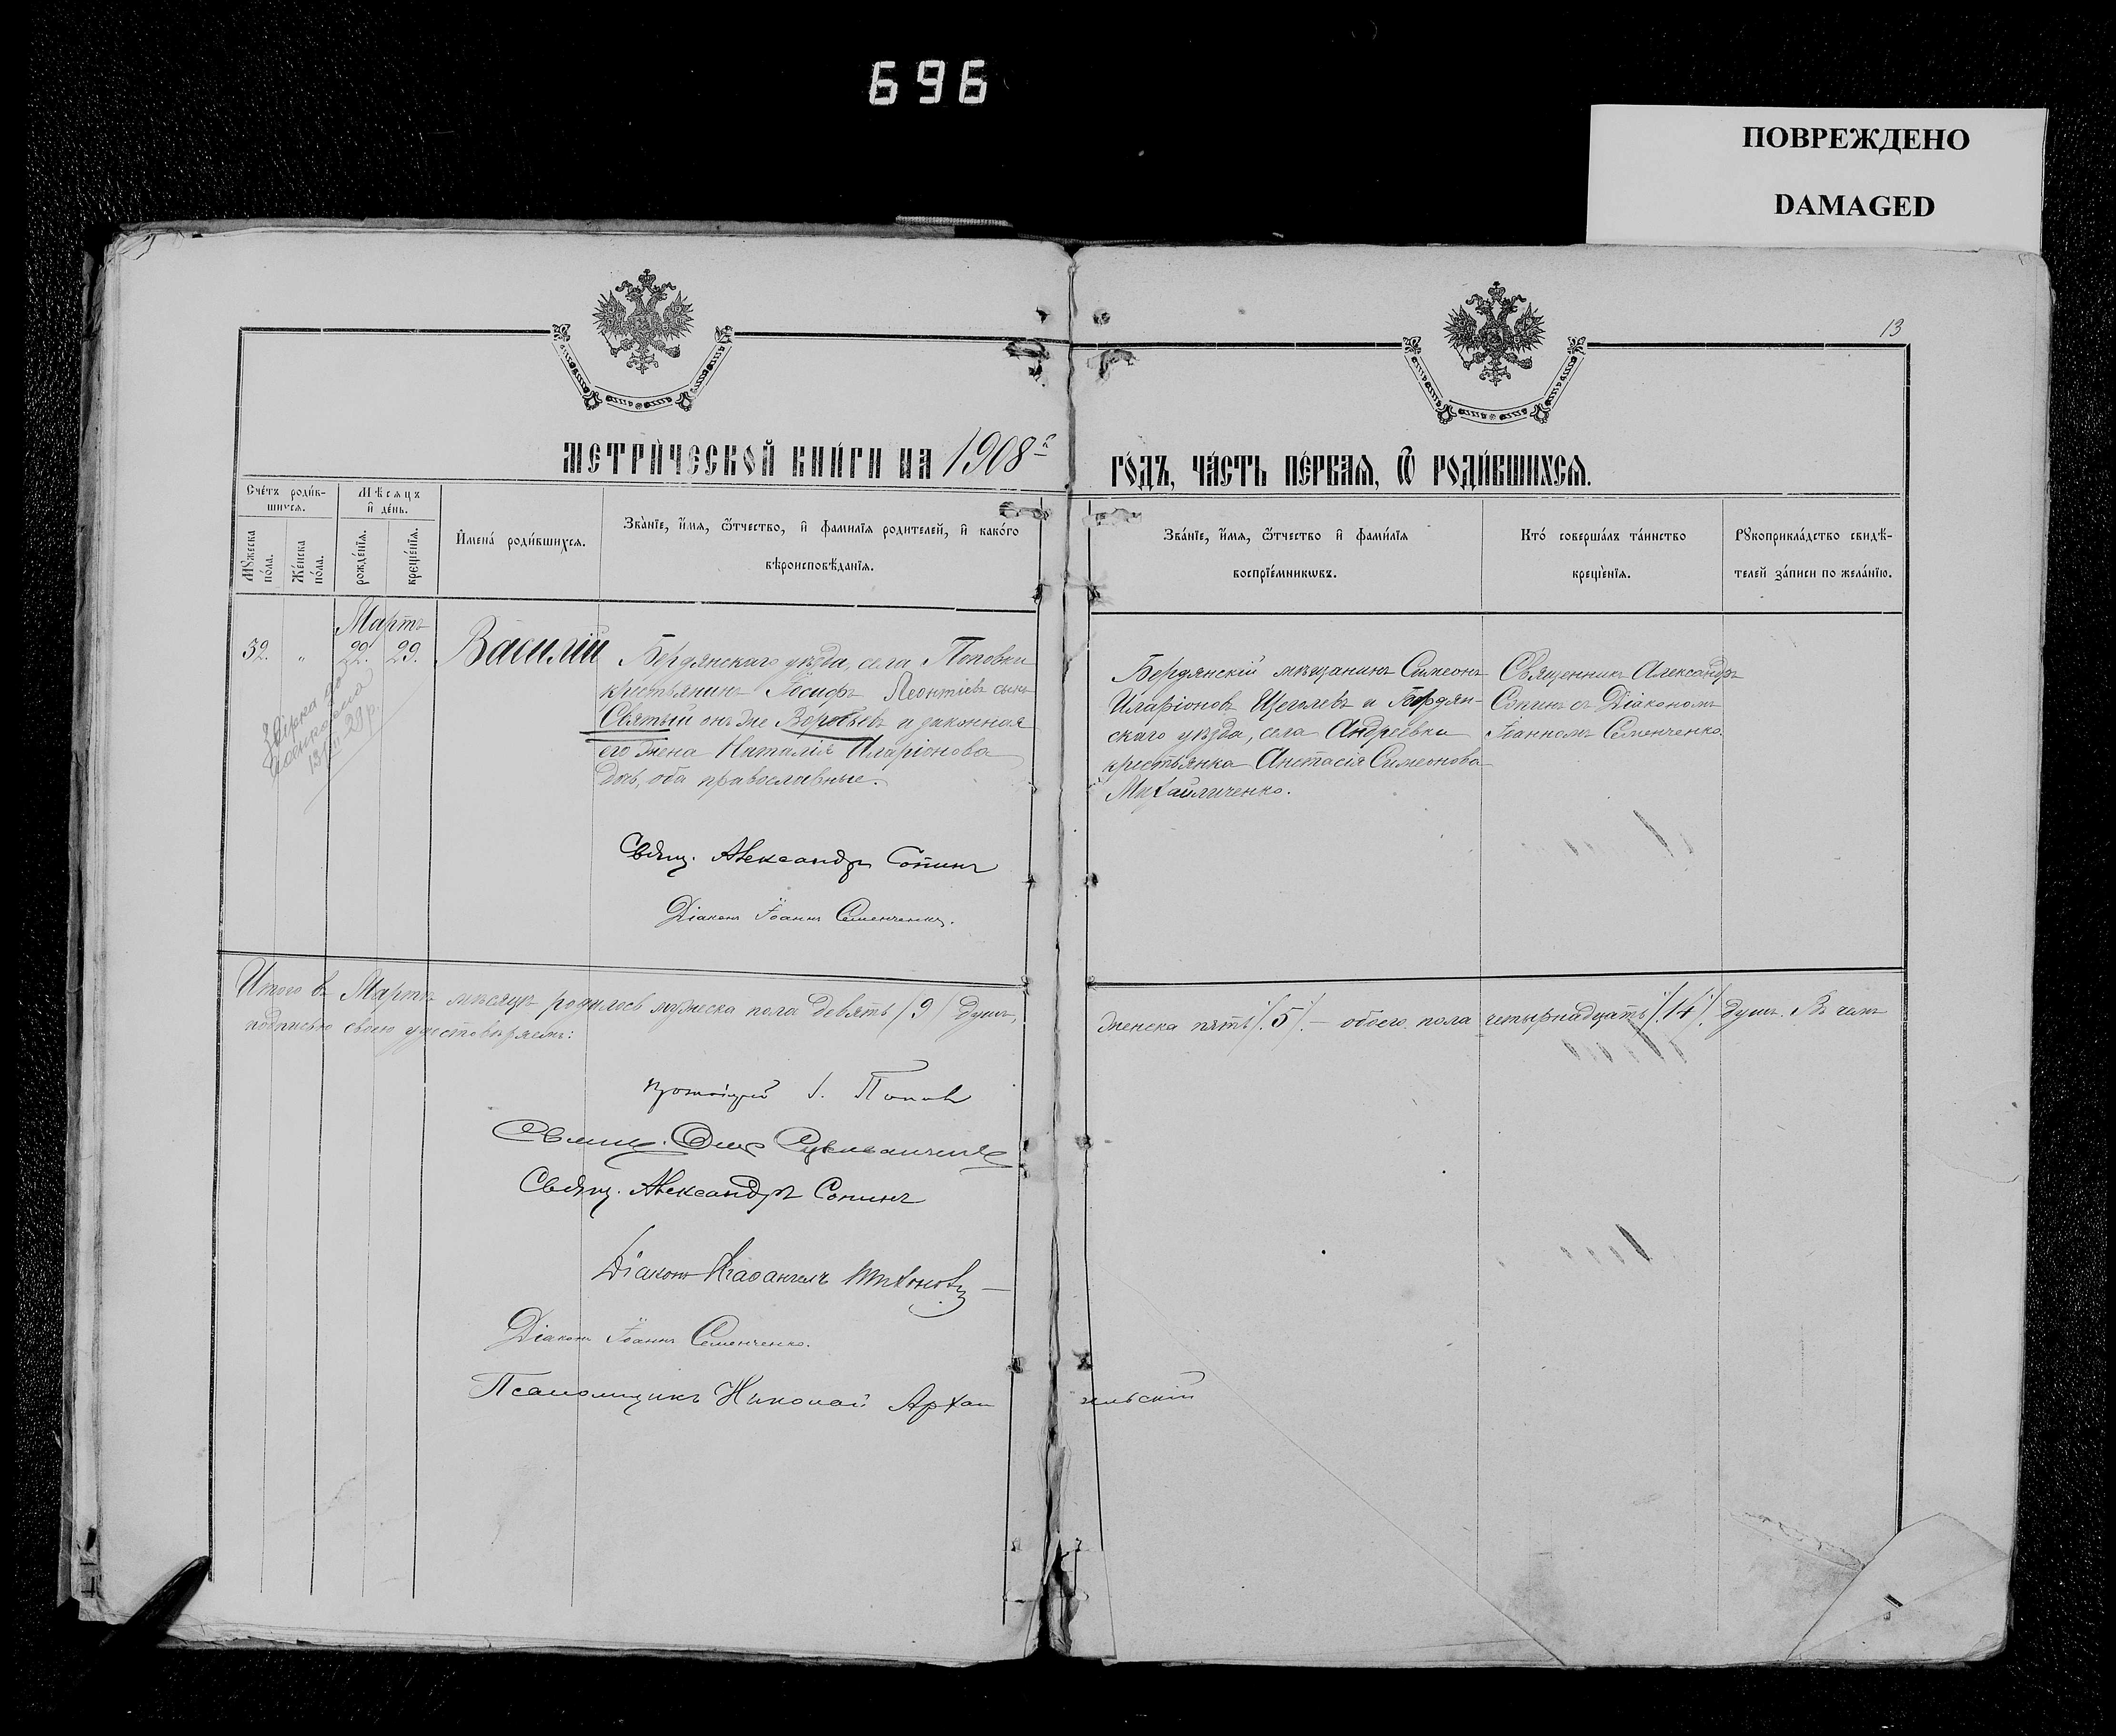 696
ПОВРЕЖДЕНО
DAMAGED
13
МЕТРИ́ЧЕСКОЙ КНИ́ГИ НА 1908 г
ГО́ДЪ, ЧА́СТЬ ПЕ́РВАѦ, Ѽ РОДИ́ВШИХСѦ.
Сче́тъ роди́в-
шихсѧ.
Мѣ́сяцъ
и҆ де́нь.
Мꙋ́жеска
по́ла.
Же́нска
по́ла.
рожде́нїѧ.
креще́нїѧ.
И҆мена̀ роди́вшихсѧ.
Зва́нїе, и҆́мѧ, ѻ҆́тчество, и҆ фами́лїѧ роди́телей, и҆ како́го
вѣроисповѣ́данїѧ.
Зва́нїе, и҆́мѧ, ѻ҆́тчество и҆ фами́лїѧ
воспрїе́мникѡвъ.
Кто̀ соверша́лъ та́инство
креще́нїѧ.
Рꙋкоприкла́дство свидѣ́-
телей за́писи по жела́нїю.
Мартъ
32. „ 22. 29. Василій
Бердянскаго уѣзда, села Поповки
крестьянинъ Іосифъ Леонтіевъ сынъ
Святый онъ же Воробьевъ и законная
его жена Наталія Иларіонова
доч., оба православные.
Бердянскій мѣщанинъ Симеонъ
Иларіоновъ Щеголевъ и Бердян-
скаго уѣзда, села Андреевки
крестьянка Анстасія Симеонова
Михайличенко.
Священникъ Александръ
Сопинъ съ Діакономъ
Іоанномъ Семенченко.
13 29 р.
Свящ. Александръ Сопинъ
Діаконъ Іоаннъ Семенченко.
Итого въ Мартѣ мѣсяцѣ родилось мужеска пола девять /9/ душъ,
женска пять /.5./ – обоего пола четырнадцать /.14./ душъ. Въ чемъ
подписью своею удостовѣряемъ:
Протоіерей І. Поповъ
Свящ.
Свящ. Александръ Сопинъ
Діаконъ Тихоновъ
Діаконъ Іоаннъ Семенченко.
Псаломщикъ Николай Архан гельскій